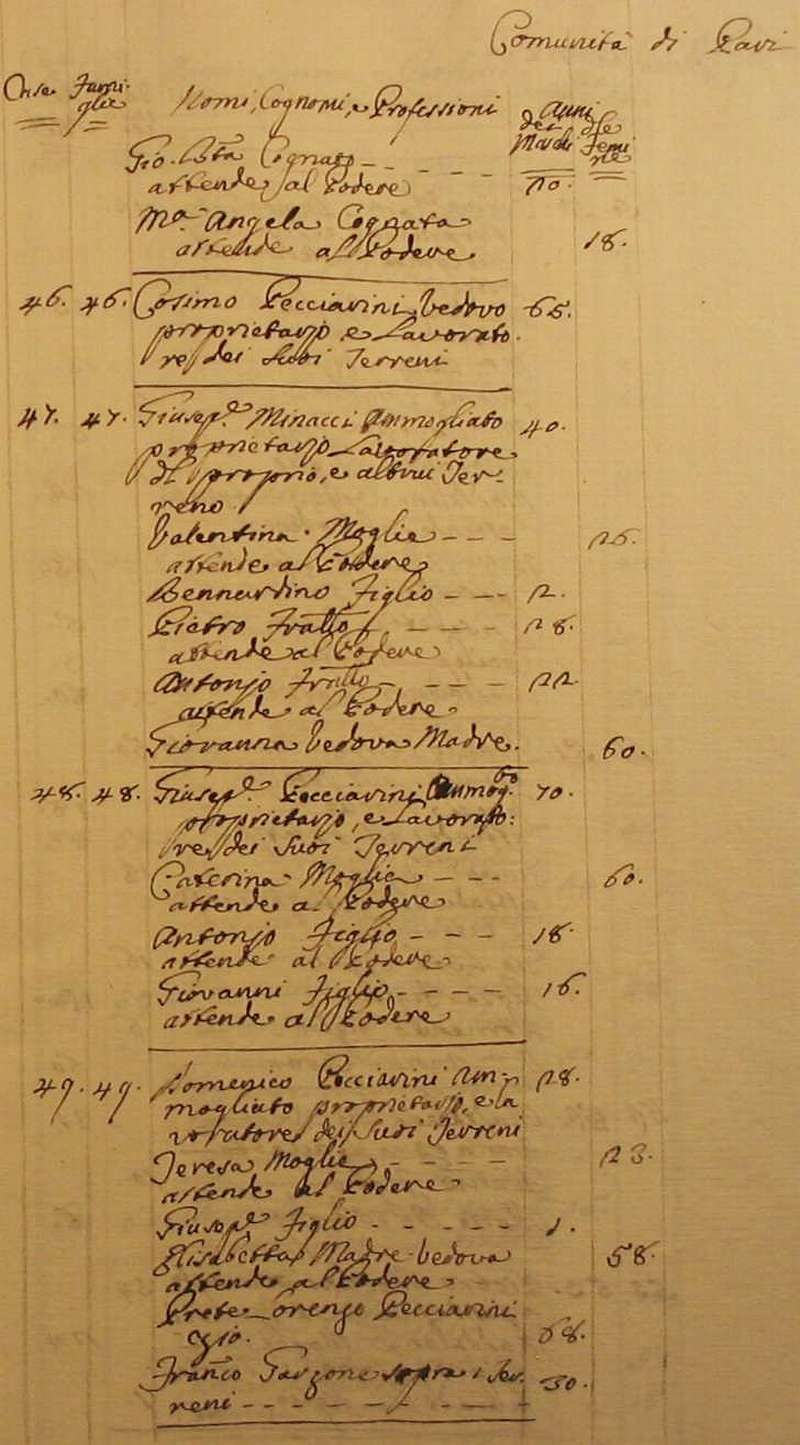 Comunità di Ravi
Case Famiglie Nomi, Cognomi, e Professioni Anni dei Maschi delle Femine
Gio. Bta Cognato - - - - 20.
attende al Podere
Ma. Angela Cognata 18.
attende al Podere
46. 46. Cosimo Pecciarini Vedovo 65.
proprietario, e Lavorato-
re dei Suoi Terreni
47. 47. Giusep.e Minacci Ammogliato 40.
proprietario Lavoratore
di proprio, e altrui Ter-
reno
Valentina Moglie - - - 25.
attende al Podere
Figlio - - - 12.
Pietro Fratello - - - 28.
attende al Podere
Antonio Fratello - - - 22.
attende al Podere
Giovanna Vedova Madre. 60.
48. 48. Giusep.e Pecciarini Ammog.to 70.
proprietario, e Lavorato-
re dei Suoi Terreni
Caterina Moglie - - - 60.
attende al Podere
Antonio Figlio - - - 18.
attende al Podere
Giovanni Figlio - - - - 16.
attende al Podere
49. 49. Domenico Pecciarini Am- 28.
mogliato proprietario, e La
voratore dei Suoi Terreni
Teresa Moglie - - - - 23.
attende al Podere
Giusep.e Figlio - - - - - 1.
Elisabetta Madre Vedova 58.
attende al Podere
Prete Lorenzo Pecciarini
Zio. 68.
Franco Garzone sopra i Ter-
reni - - - - - - - 30.